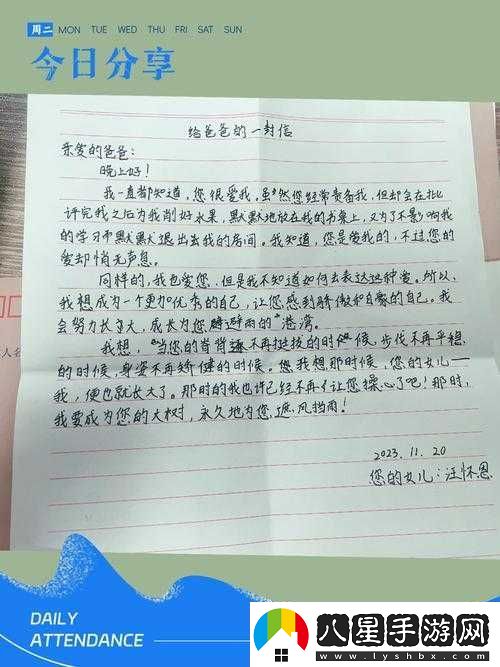 周二 MON TUE WED THU FRI SAT SUN
今日分享
给爸爸的一封信
亲爱的爸爸：
晚上好！
我一直都知道，您很爱我，虽然您经常责备我，但却会在批
评完我之后为我削好水果，默默地放在我的书桌上，又为了不影响我
的学习而默默退出去我的房间。我知道，您是爱我的，不过您的
爱却悄无声息。
同样的，我也爱您，但是我不知道如何去表达这种爱。所以，
我想成为一个更加优秀的自己，让您感到骄傲和自豪的自己。我
会努力长大，成长为您避雨的港湾。
我想，当您的脊背不再挺拔的时候，步伐不再平稳
的时候，身姿不再矫健的时候。我想那时候，您的女儿——
我，便也就长大了。那时的我也许已经不再让您操心了吧！那时，
我要成为您的大树，永久地为您遮风挡雨！
2023.11.20
您的女儿：汪怀恩
DAILY
ATTENDANCE
八星手游网
www.lyshbx.com